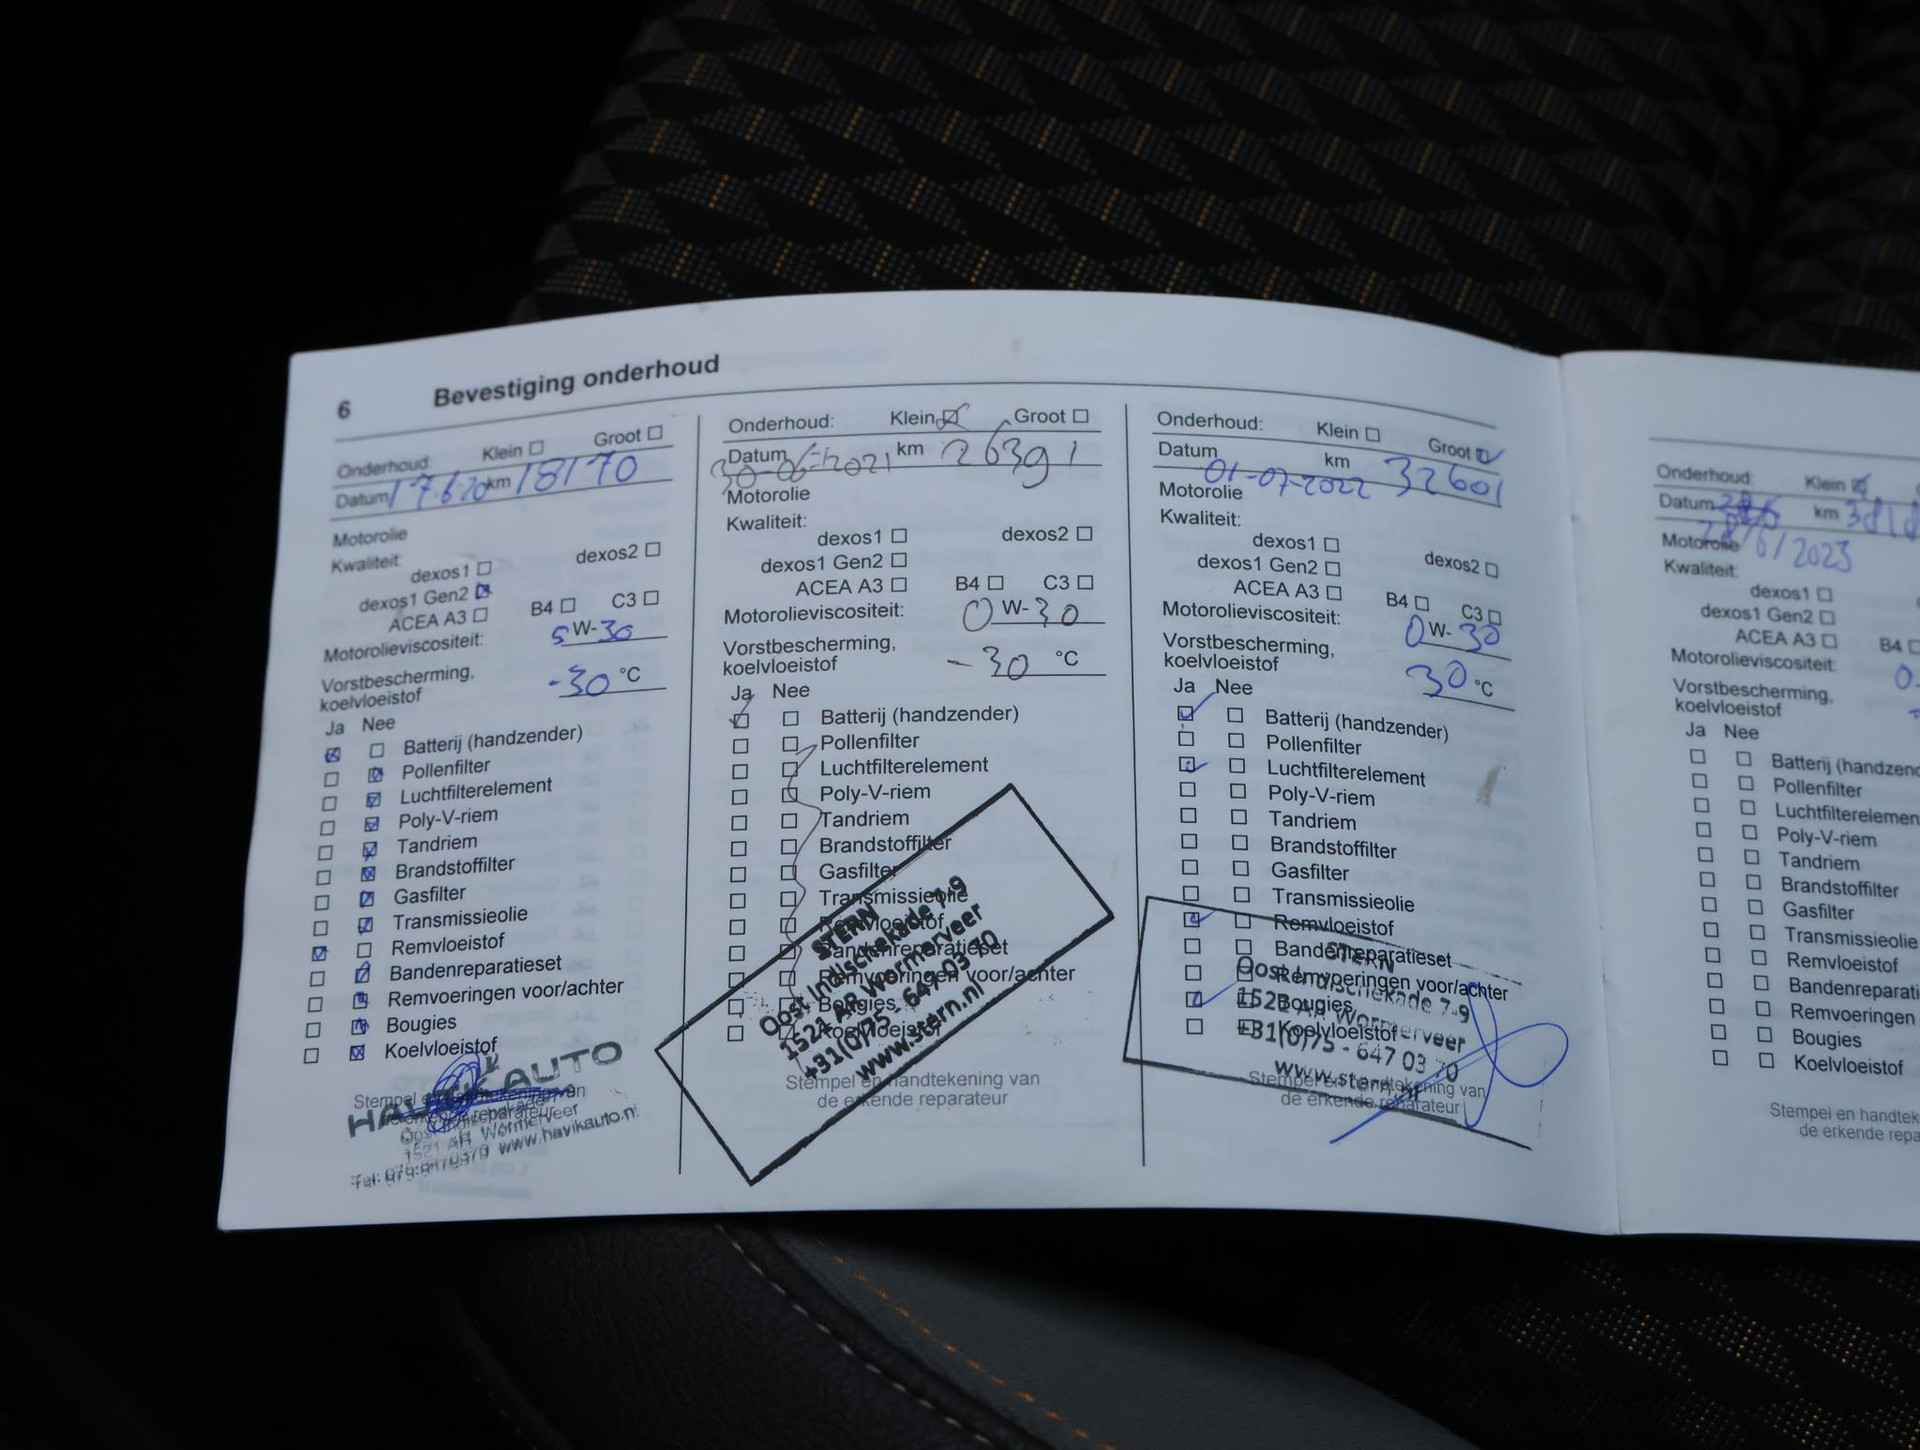 6 Bevestiging onderhoud
Onderhoud: Klein Groot
Datum 17.6.20 km 18170
Motorolie
Kwaliteit:
dexos1 dexos2
dexos1 Gen2
ACEA A3 B4 C3
Motorolieviscositeit: 5 W-30
Vorstbescherming,
koelvloeistof -30 °C
Ja Nee
Batterij (handzender)
Pollenfilter
Luchtfilterelement
Poly-V-riem
Tandriem
Brandstoffilter
Gasfilter
Transmissieolie
Remvloeistof
Bandenreparatieset
Remvoeringen voor/achter
Bougies
Koelvloeistof
HAVIK AUTO
Stempel en handtekening van
de erkende reparateur
1521 AR Wormerveer
www.havikauto.nl
Onderhoud: Klein Groot
Datum 30-06-2021 km 26391
Motorolie
Kwaliteit:
dexos1 dexos2
dexos1 Gen2
ACEA A3 B4 C3
Motorolieviscositeit: 0 W-30
Vorstbescherming,
koelvloeistof -30 °C
Ja Nee
Batterij (handzender)
Pollenfilter
Luchtfilterelement
Poly-V-riem
Tandriem
Brandstoffilter
Gasfilter
Transmissieolie
Remvloeistof
Bandenreparatieset
Remvoeringen voor/achter
Bougies
Koelvloeistof
STERN
Oost Indischekade 7-9
1521 AR Wormerveer
+31(0)75 - 647 03 70
www.stern.nl
Stempel en handtekening van
de erkende reparateur
Onderhoud: Klein Groot
Datum 01-07-2022 km 32601
Motorolie
Kwaliteit:
dexos1 dexos2
dexos1 Gen2
ACEA A3 B4 C3
Motorolieviscositeit: 0 W-30
Vorstbescherming,
koelvloeistof 30 °C
Ja Nee
Batterij (handzender)
Pollenfilter
Luchtfilterelement
Poly-V-riem
Tandriem
Brandstoffilter
Gasfilter
Transmissieolie
Remvloeistof
Bandenreparatieset
Remvoeringen voor/achter
Bougies
Koelvloeistof
STERN
Oost Indischekade 7-9
1521 AR Wormerveer
+31(0)75 - 647 03 70
www.stern.nl
Stempel en handtekening van
de erkende reparateur
Onderhoud: Klein
Datum km
28/6/2023
Motorolie
Kwaliteit:
dexos1
dexos1 Gen2
ACEA A3 B4
Motorolieviscositeit: 0
Vorstbescherming,
koelvloeistof
Ja Nee
Batterij (handzend
Pollenfilter
Luchtfilterelemen
Poly-V-riem
Tandriem
Brandstoffilter
Gasfilter
Transmissieolie
Remvloeistof
Bandenreparati
Remvoeringen
Bougies
Koelvloeistof
Stempel en handtek
de erkende repa